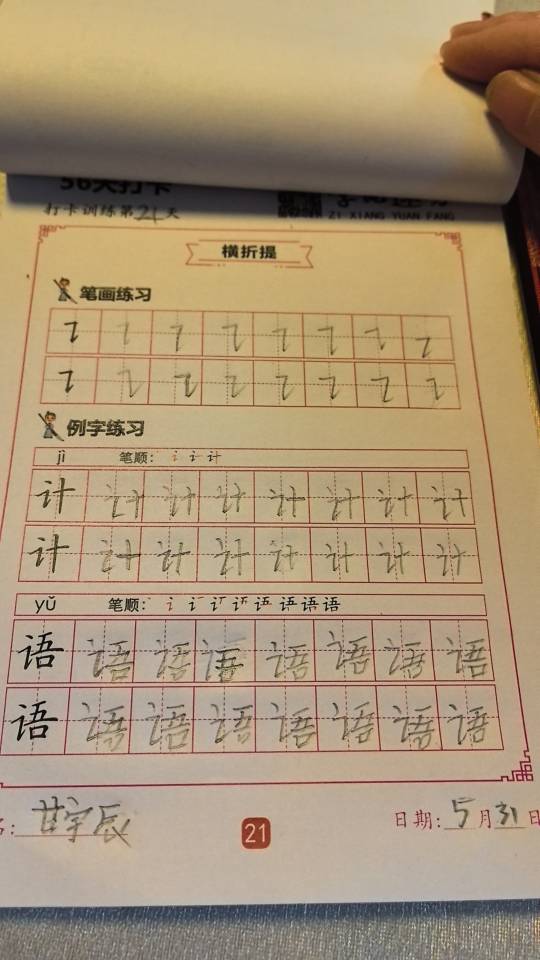 56天打卡
打卡训练第21天
ZI XIANG YUAN FANG
横折提
笔画练习
㇊ ㇊ ㇊ ㇊ ㇊ ㇊ ㇊ ㇊
㇊ ㇊ ㇊ ㇊ ㇊ ㇊ ㇊ ㇊
例字练习
jì 笔顺:
计 计 计 计 计 计 计 计
计 计 计 计 计 计 计 计
yǔ 笔顺:
语 语 语 语 语 语 语 语
语 语 语 语 语 语 语 语
名:甘宇辰 21 日期:5月31日